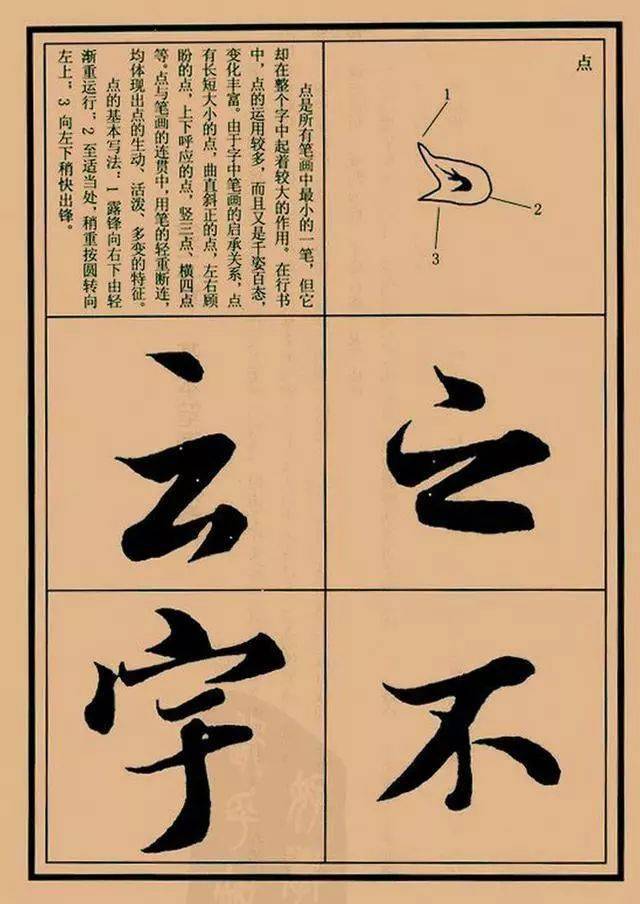 点
1
2
3
点是所有笔画中最小的一笔，但它
却在整个字中起着较大的作用。在行书
中，点的运用较多，而且又是千姿百态，
变化丰富。由于字中笔画的启承关系，点
有长短大小的点，曲直斜正的点，左右顾
盼的点，上下呼应的点，竖三点、横四点
等。点与笔画的连贯中，用笔的轻重断连，
均体现出点的生动、活泼、多变的特征。
点的基本写法：1 露锋向右下由轻
渐重运行；2 至适当处，稍重按圆转向
左上；3 向左下稍快出锋。
之
不
云
宇